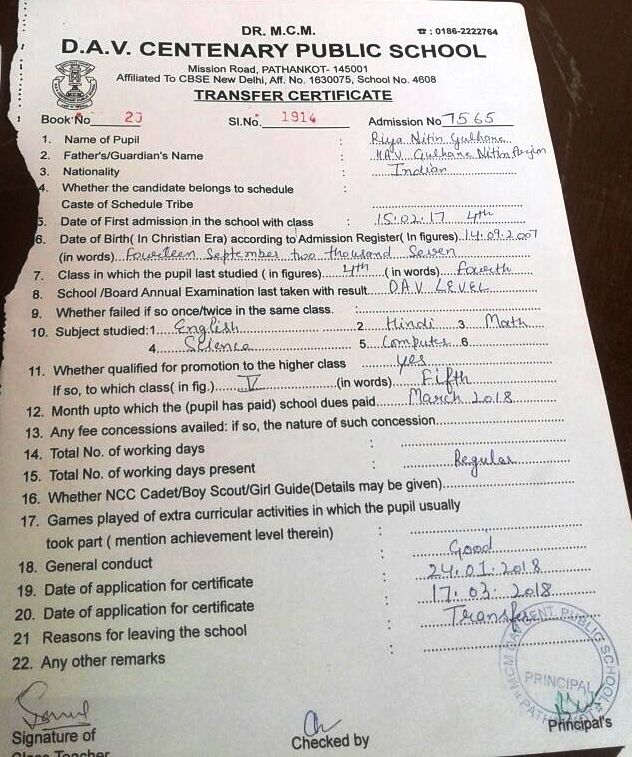 DR. M.C.M.
☎ : 0186-2222764
D.A.V. CENTENARY PUBLIC SCHOOL
Mission Road, PATHANKOT- 145001
Affiliated To CBSE New Delhi, Aff. No. 1630075, School No. 4608
TRANSFER CERTIFICATE
Book No 20 Sl.No. 1914 Admission No 7565
1. Name of Pupil : Riya Nitin Gulhane
2. Father's/Guardian's Name : HAV Gulhane Nitin
3. Nationality : Indian
4. Whether the candidate belongs to schedule :
Caste of Schedule Tribe
5. Date of First admission in the school with class : 15.02.17 4th
6. Date of Birth( In Christian Era) according to Admission Register( In figures) 14.09.2007
(in words) Fourteen September two thousand Seven
7. Class in which the pupil last studied ( in figures) 4th ( in words) fourth
8. School /Board Annual Examination last taken with result DAV LEVEL
9. Whether failed if so once/twice in the same class. :
10. Subject studied:1 English 2 Hindi 3 Math
4 Science 5 Computer 6
11. Whether qualified for promotion to the higher class yes
If so, to which class( in fig.) V (in words) Fifth
12. Month upto which the (pupil has paid) school dues paid March 2018
13. Any fee concessions availed: if so, the nature of such concession
14. Total No. of working days :
15. Total No. of working days present : Regular
16. Whether NCC Cadet/Boy Scout/Girl Guide(Details may be given)
17. Games played of extra curricular activities in which the pupil usually
took part ( mention achievement level therein) :
18. General conduct : Good
19. Date of application for certificate : 24.01.2018
20. Date of application for certificate : 17.03.2018
21 Reasons for leaving the school : Transfer
22. Any other remarks :
PUBLIC SCHOOL
PRINCIPAL
Signature of
Class Teacher
Checked by
Principal's